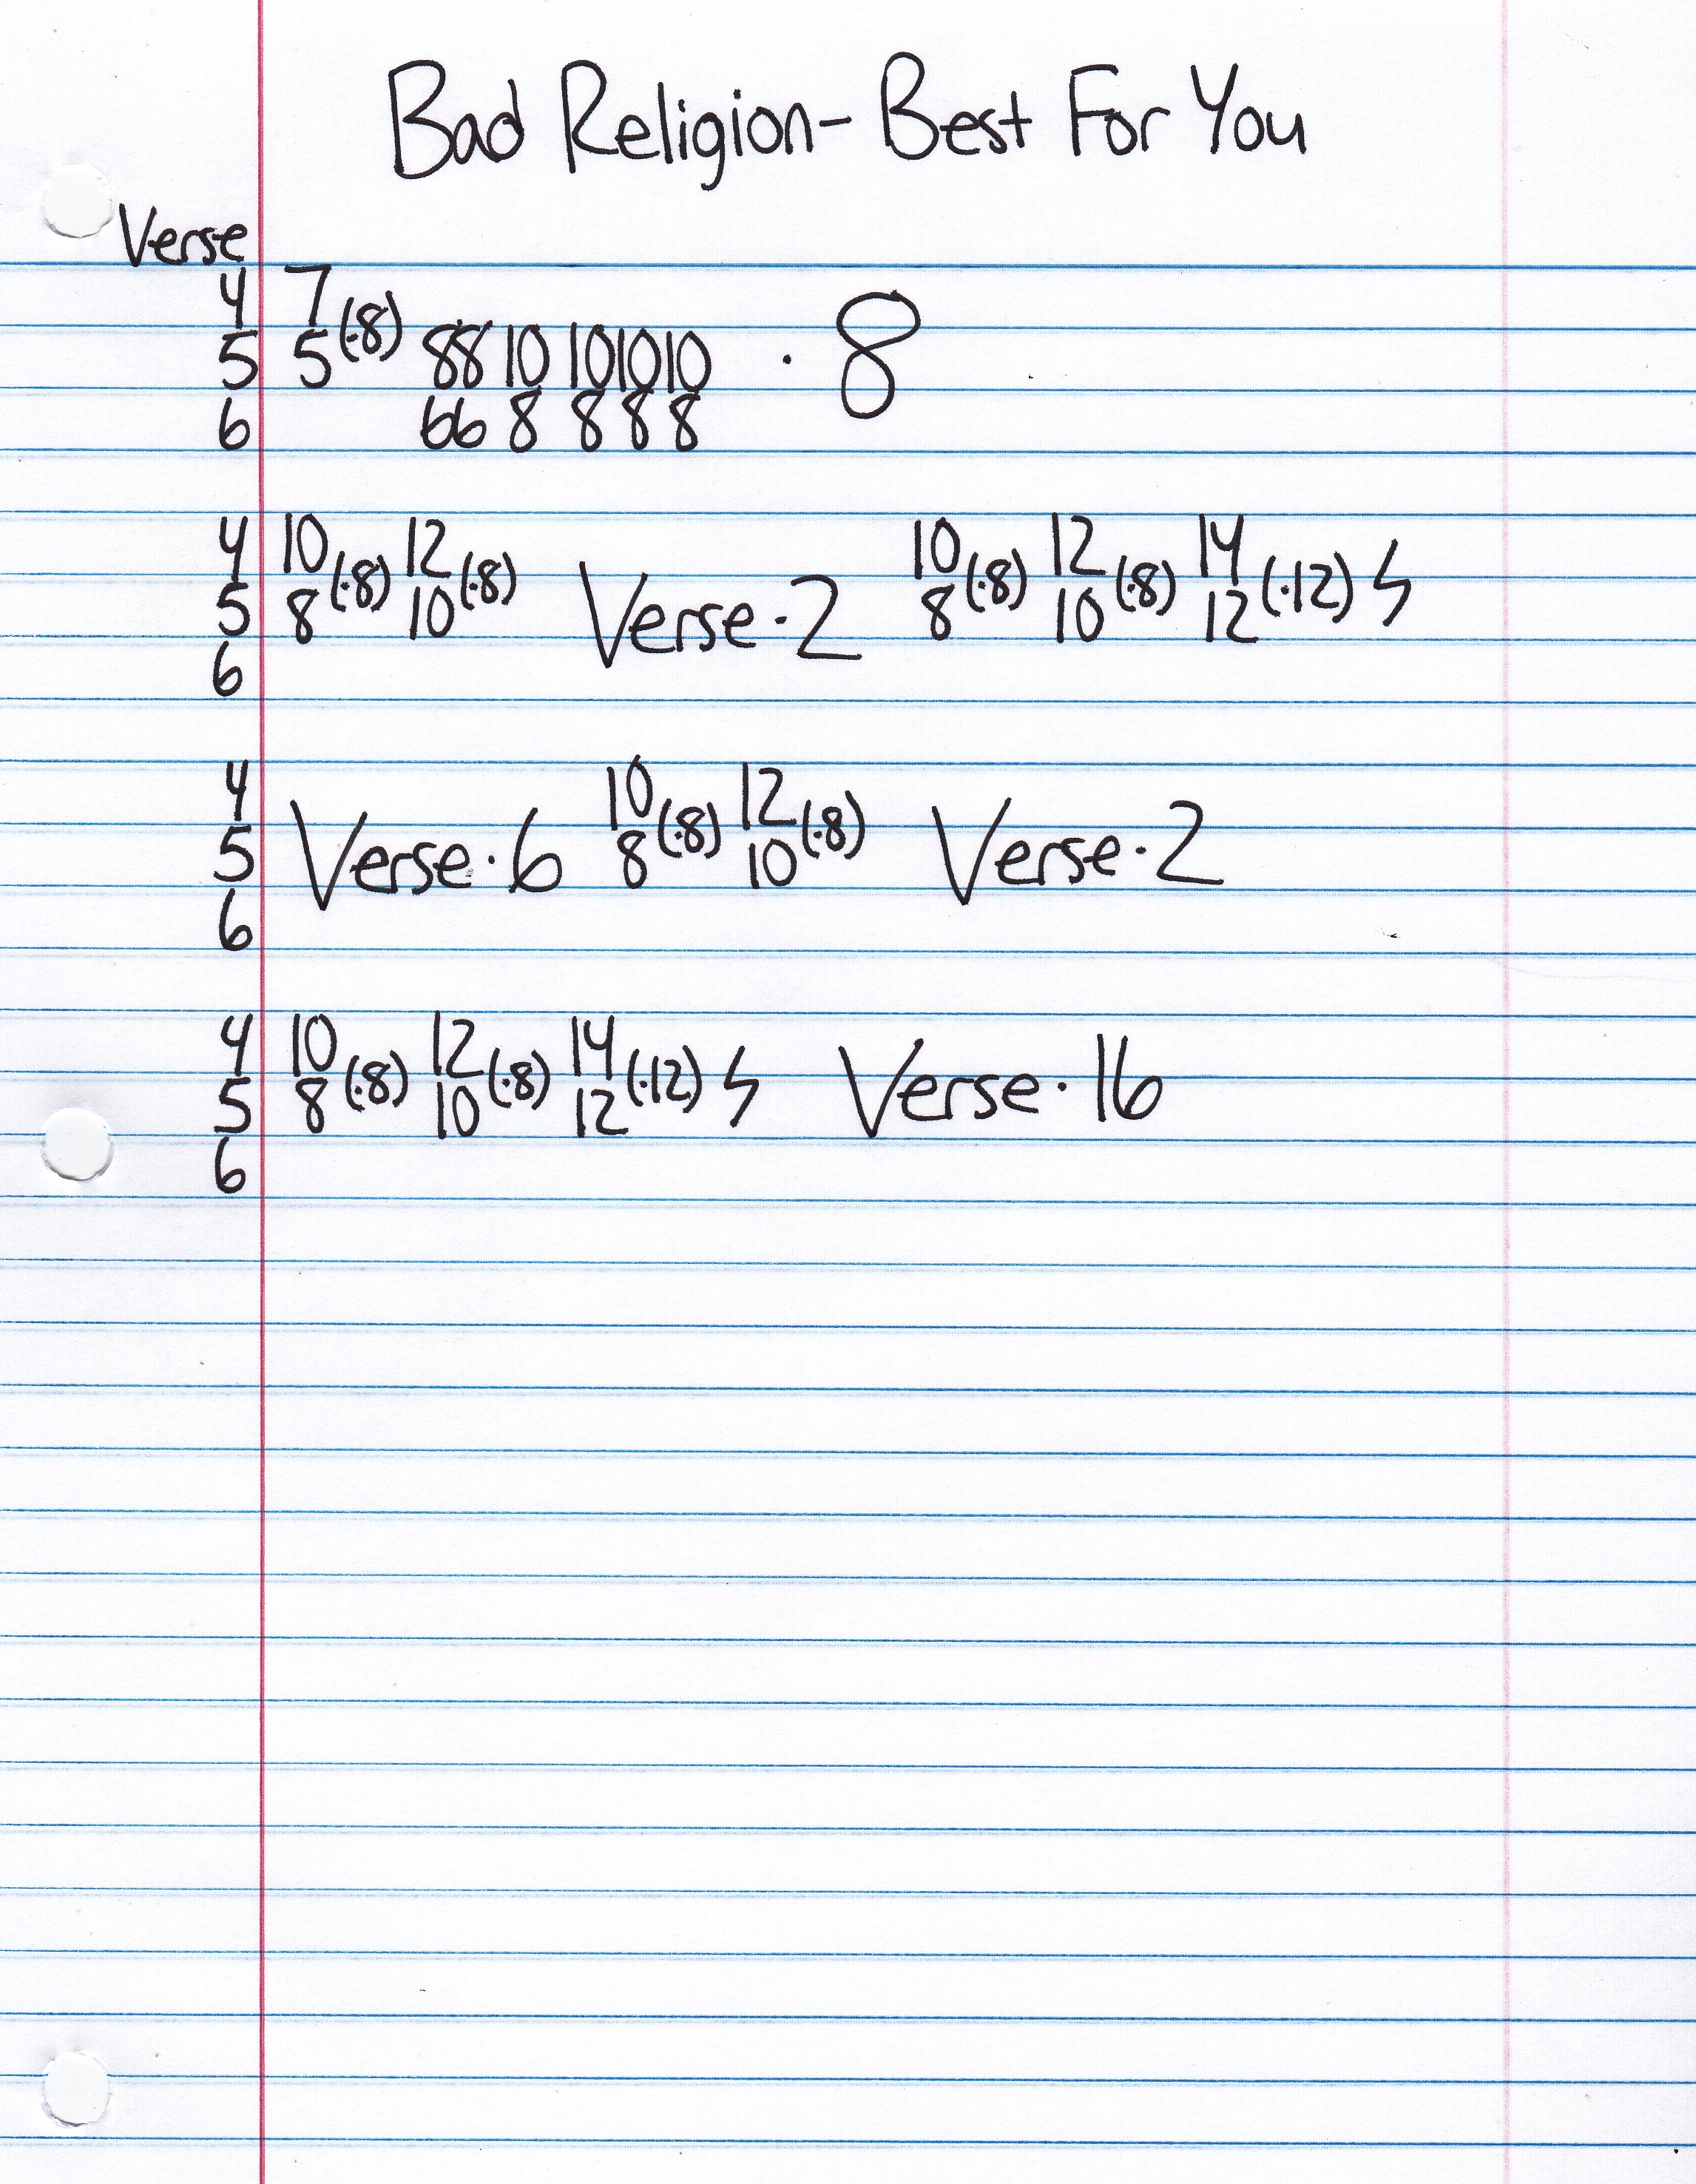 Bad Religion- Best For You
Verse
4 7
5 5(·8) 88 10 10 10 10 · 8
6 66 8 8 8 8
4 10 12 10 12 14
5 8(·8) 10(·8) Verse·2 8(·8) 10(·8) 12(·12) ϟ
6
4 10 12
5 Verse·6 8(·8) 10(·8) Verse·2
6
4 10 12 14
5 8(·8) 10(·8) 12(·12) ϟ Verse·16
6